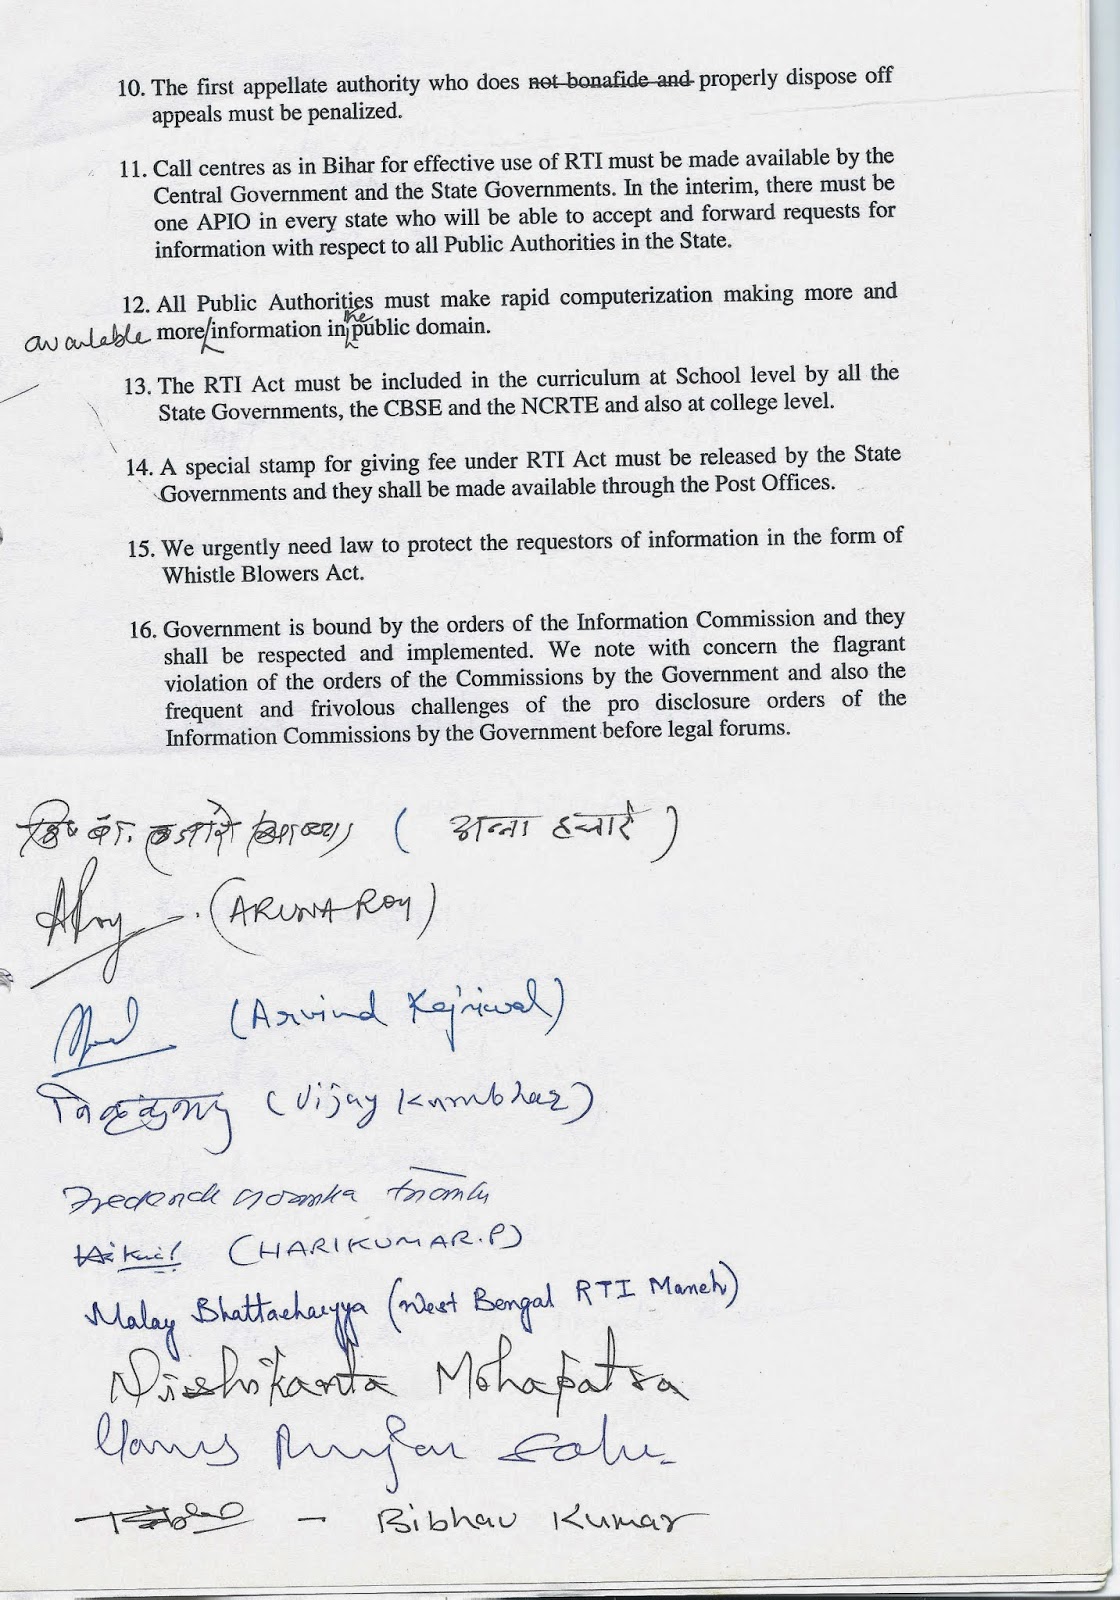 10. The first appellate authority who does not bonafide and properly dispose off
appeals must be penalized.
11. Call centres as in Bihar for effective use of RTI must be made available by the
Central Government and the State Governments. In the interim, there must be
one APIO in every state who will be able to accept and forward requests for
information with respect to all Public Authorities in the State.
12. All Public Authorities must make rapid computerization making more and
more available information in the public domain.
13. The RTI Act must be included in the curriculum at School level by all the
State Governments, the CBSE and the NCRTE and also at college level.
14. A special stamp for giving fee under RTI Act must be released by the State
Governments and they shall be made available through the Post Offices.
15. We urgently need law to protect the requestors of information in the form of
Whistle Blowers Act.
16. Government is bound by the orders of the Information Commission and they
shall be respected and implemented. We note with concern the flagrant
violation of the orders of the Commissions by the Government and also the
frequent and frivolous challenges of the pro disclosure orders of the
Information Commissions by the Government before legal forums.
(अन्ना हजारे)
ARoy (ARUNA ROY)
(Arvind Kejriwal)
(Vijay Kumbhar)
(HARIKUMAR.P)
Malay Bhattacharyya (West Bengal RTI Manch)
Nishikanta Mohapatra
Sahu
- Bibhav Kumar